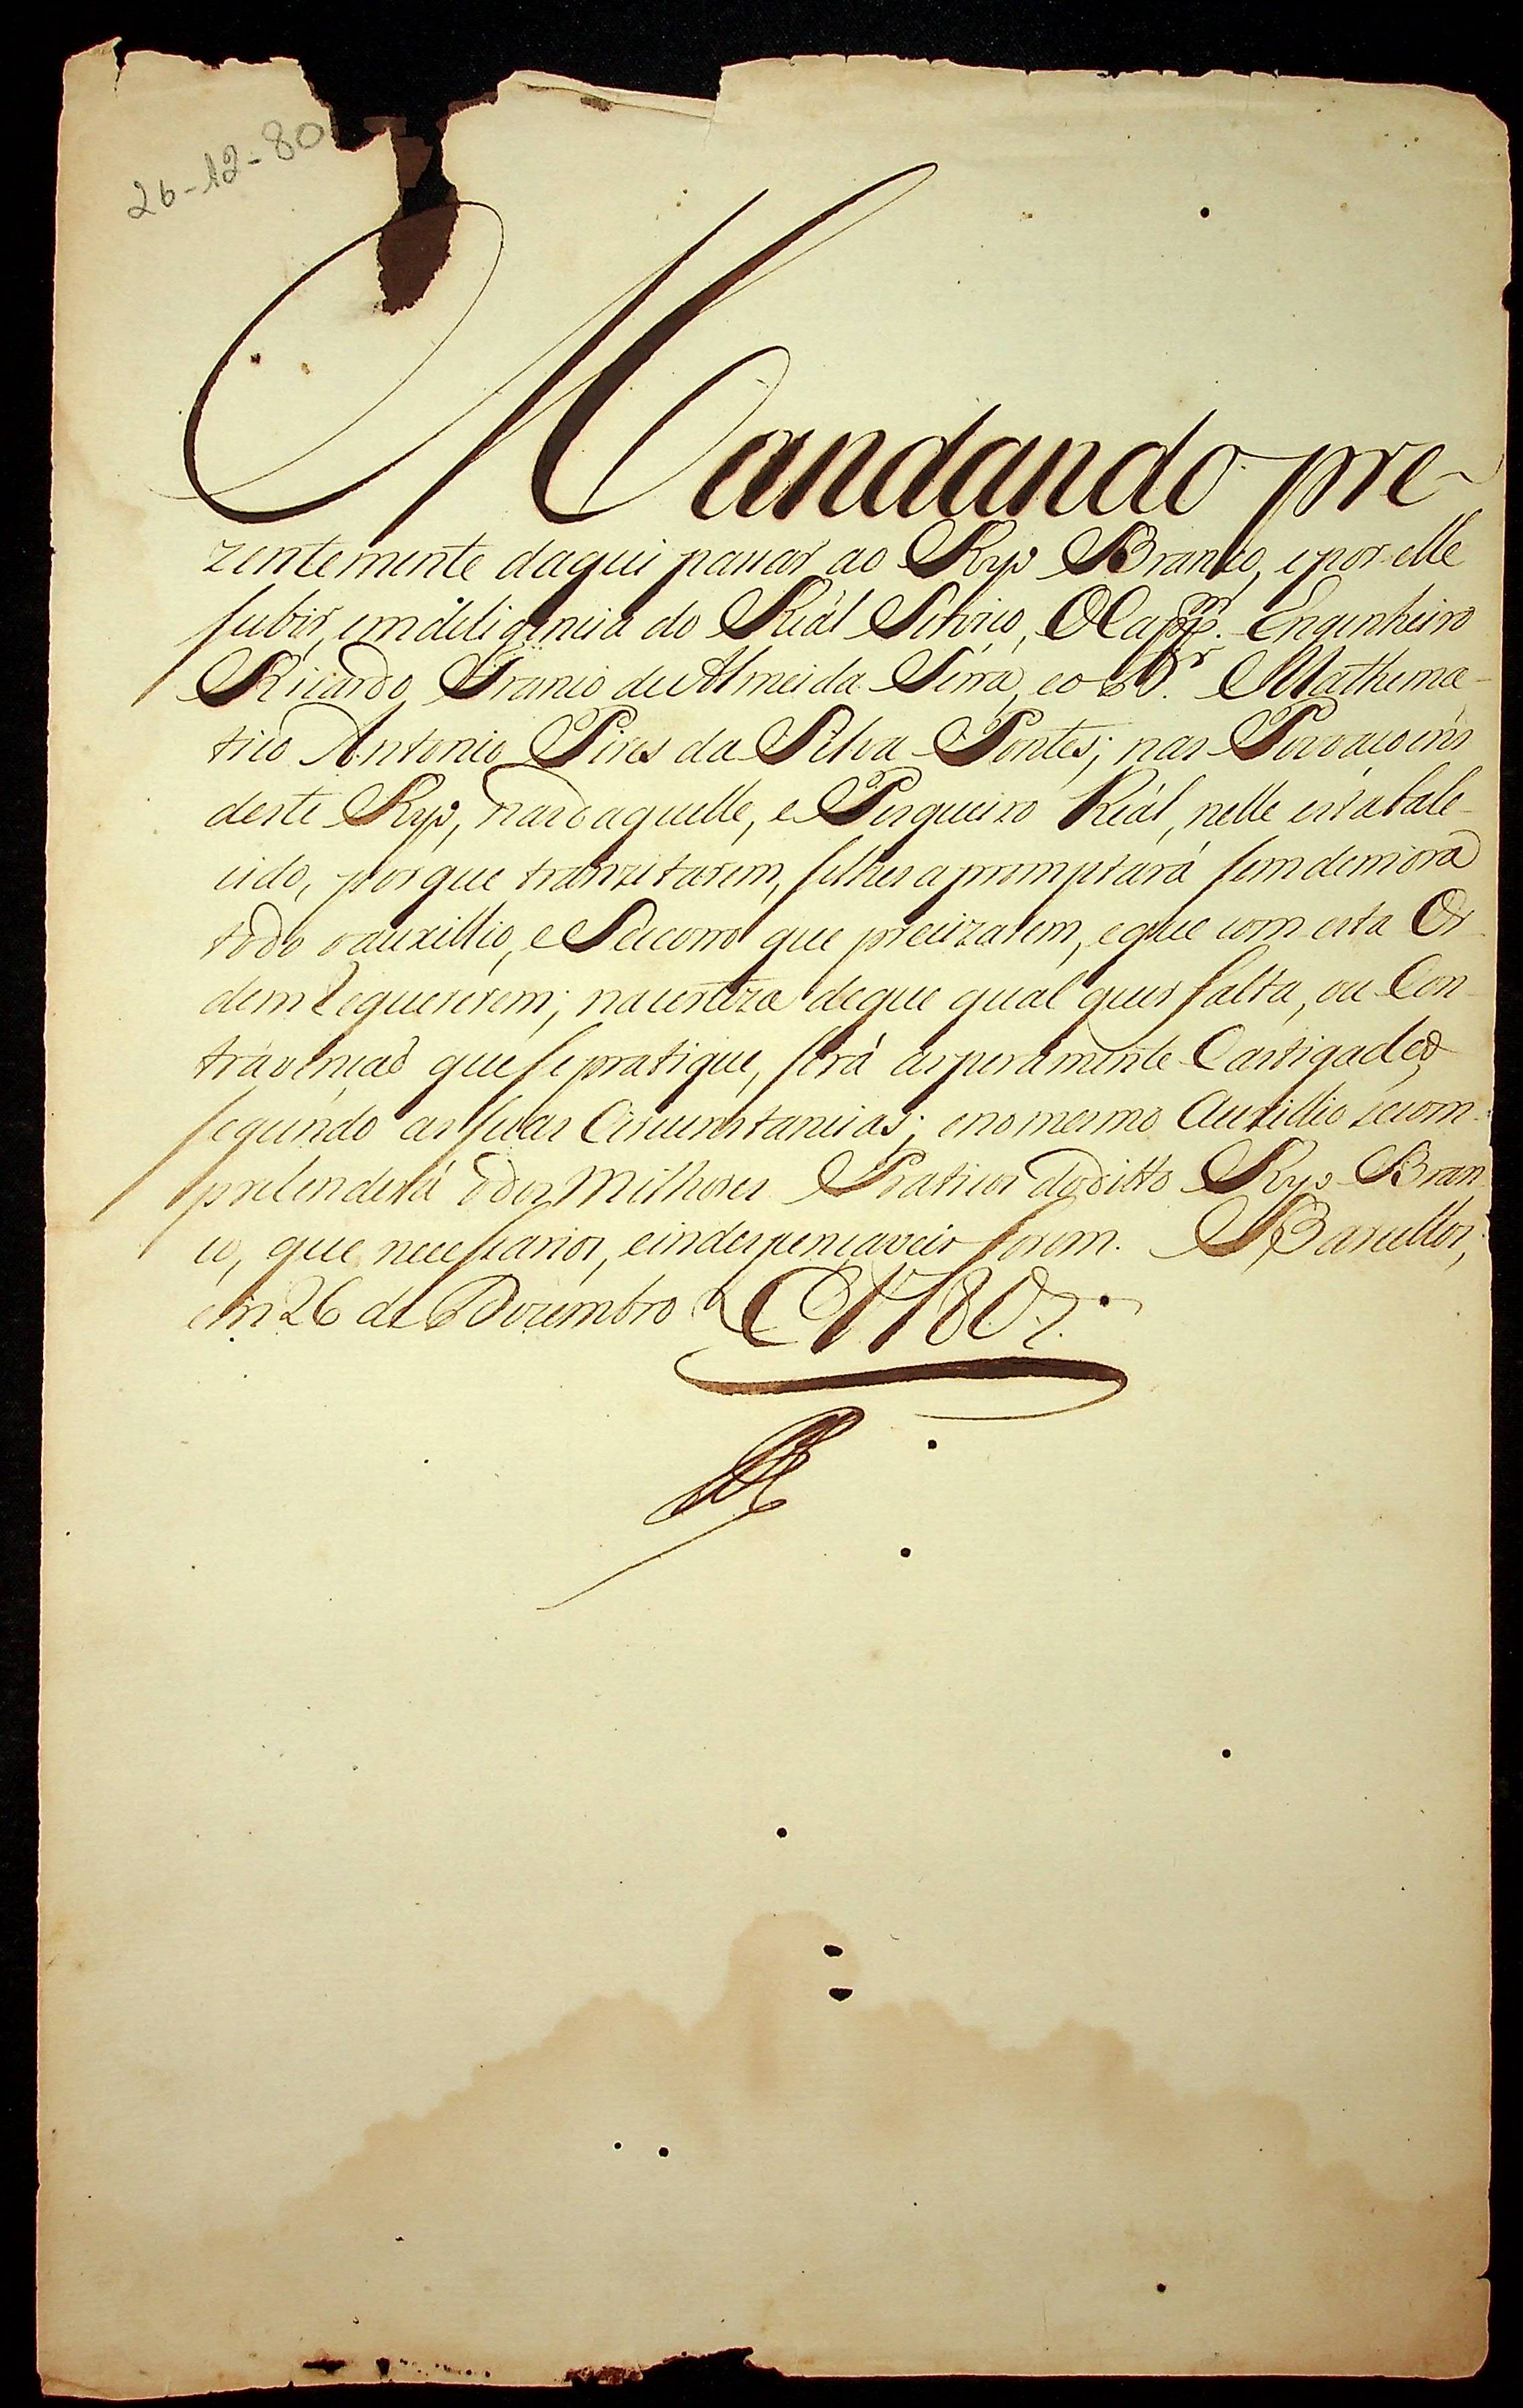 26-12-80
Mandando pre-
zentemente daqui passar ao Ryo Branco, e por elle
subir, em diligencia do Reál Serviço, O Capp.m Engenheiro
Ricardo Franco de Almeida Serra, e o D.r Mathema-
tico Antonio Pires da Silva Pontes; nas Povoaçoens
deste Ryo, nas daquelle, e Pesqueiro Reál, nelle estabale-
cido, por que tranzitarem, se lhes apromptará sem demora
todo o auxillio, e Soccorro que precizarem, e que com esta Or-
dem requererem; na certeza de que qual quer falta, ou Con-
travenças que se pratique, será asperamente Castigado,
segundo as suas Circunstancias; e no mesmo Auxillio se com-
prehenderá o dos Milhores Praticos do ditto Ryo Bran-
co, que necessarios, e indespençaveis forem. Barcellos,
em 26 de Dezembro de 1780.